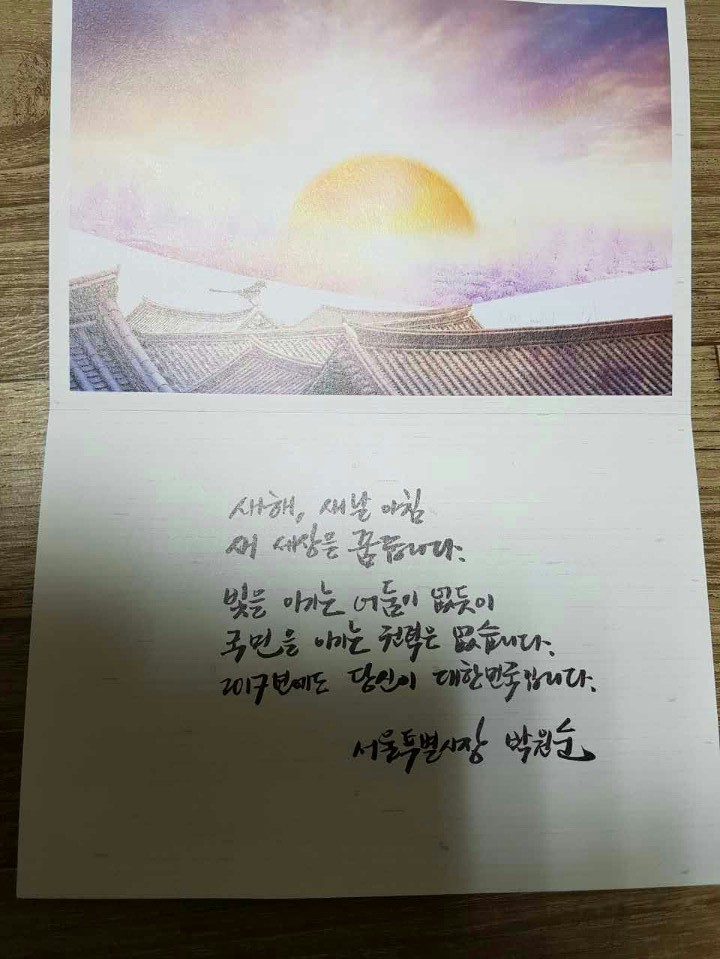 새해, 새날 아침
새 세상을 꿈꿉니다.
빛을 이기는 어둠이 없듯이
국민을 이기는 권력은 없습니다.
2017년에도 당신이 대한민국입니다.
서울특별시장 박원순